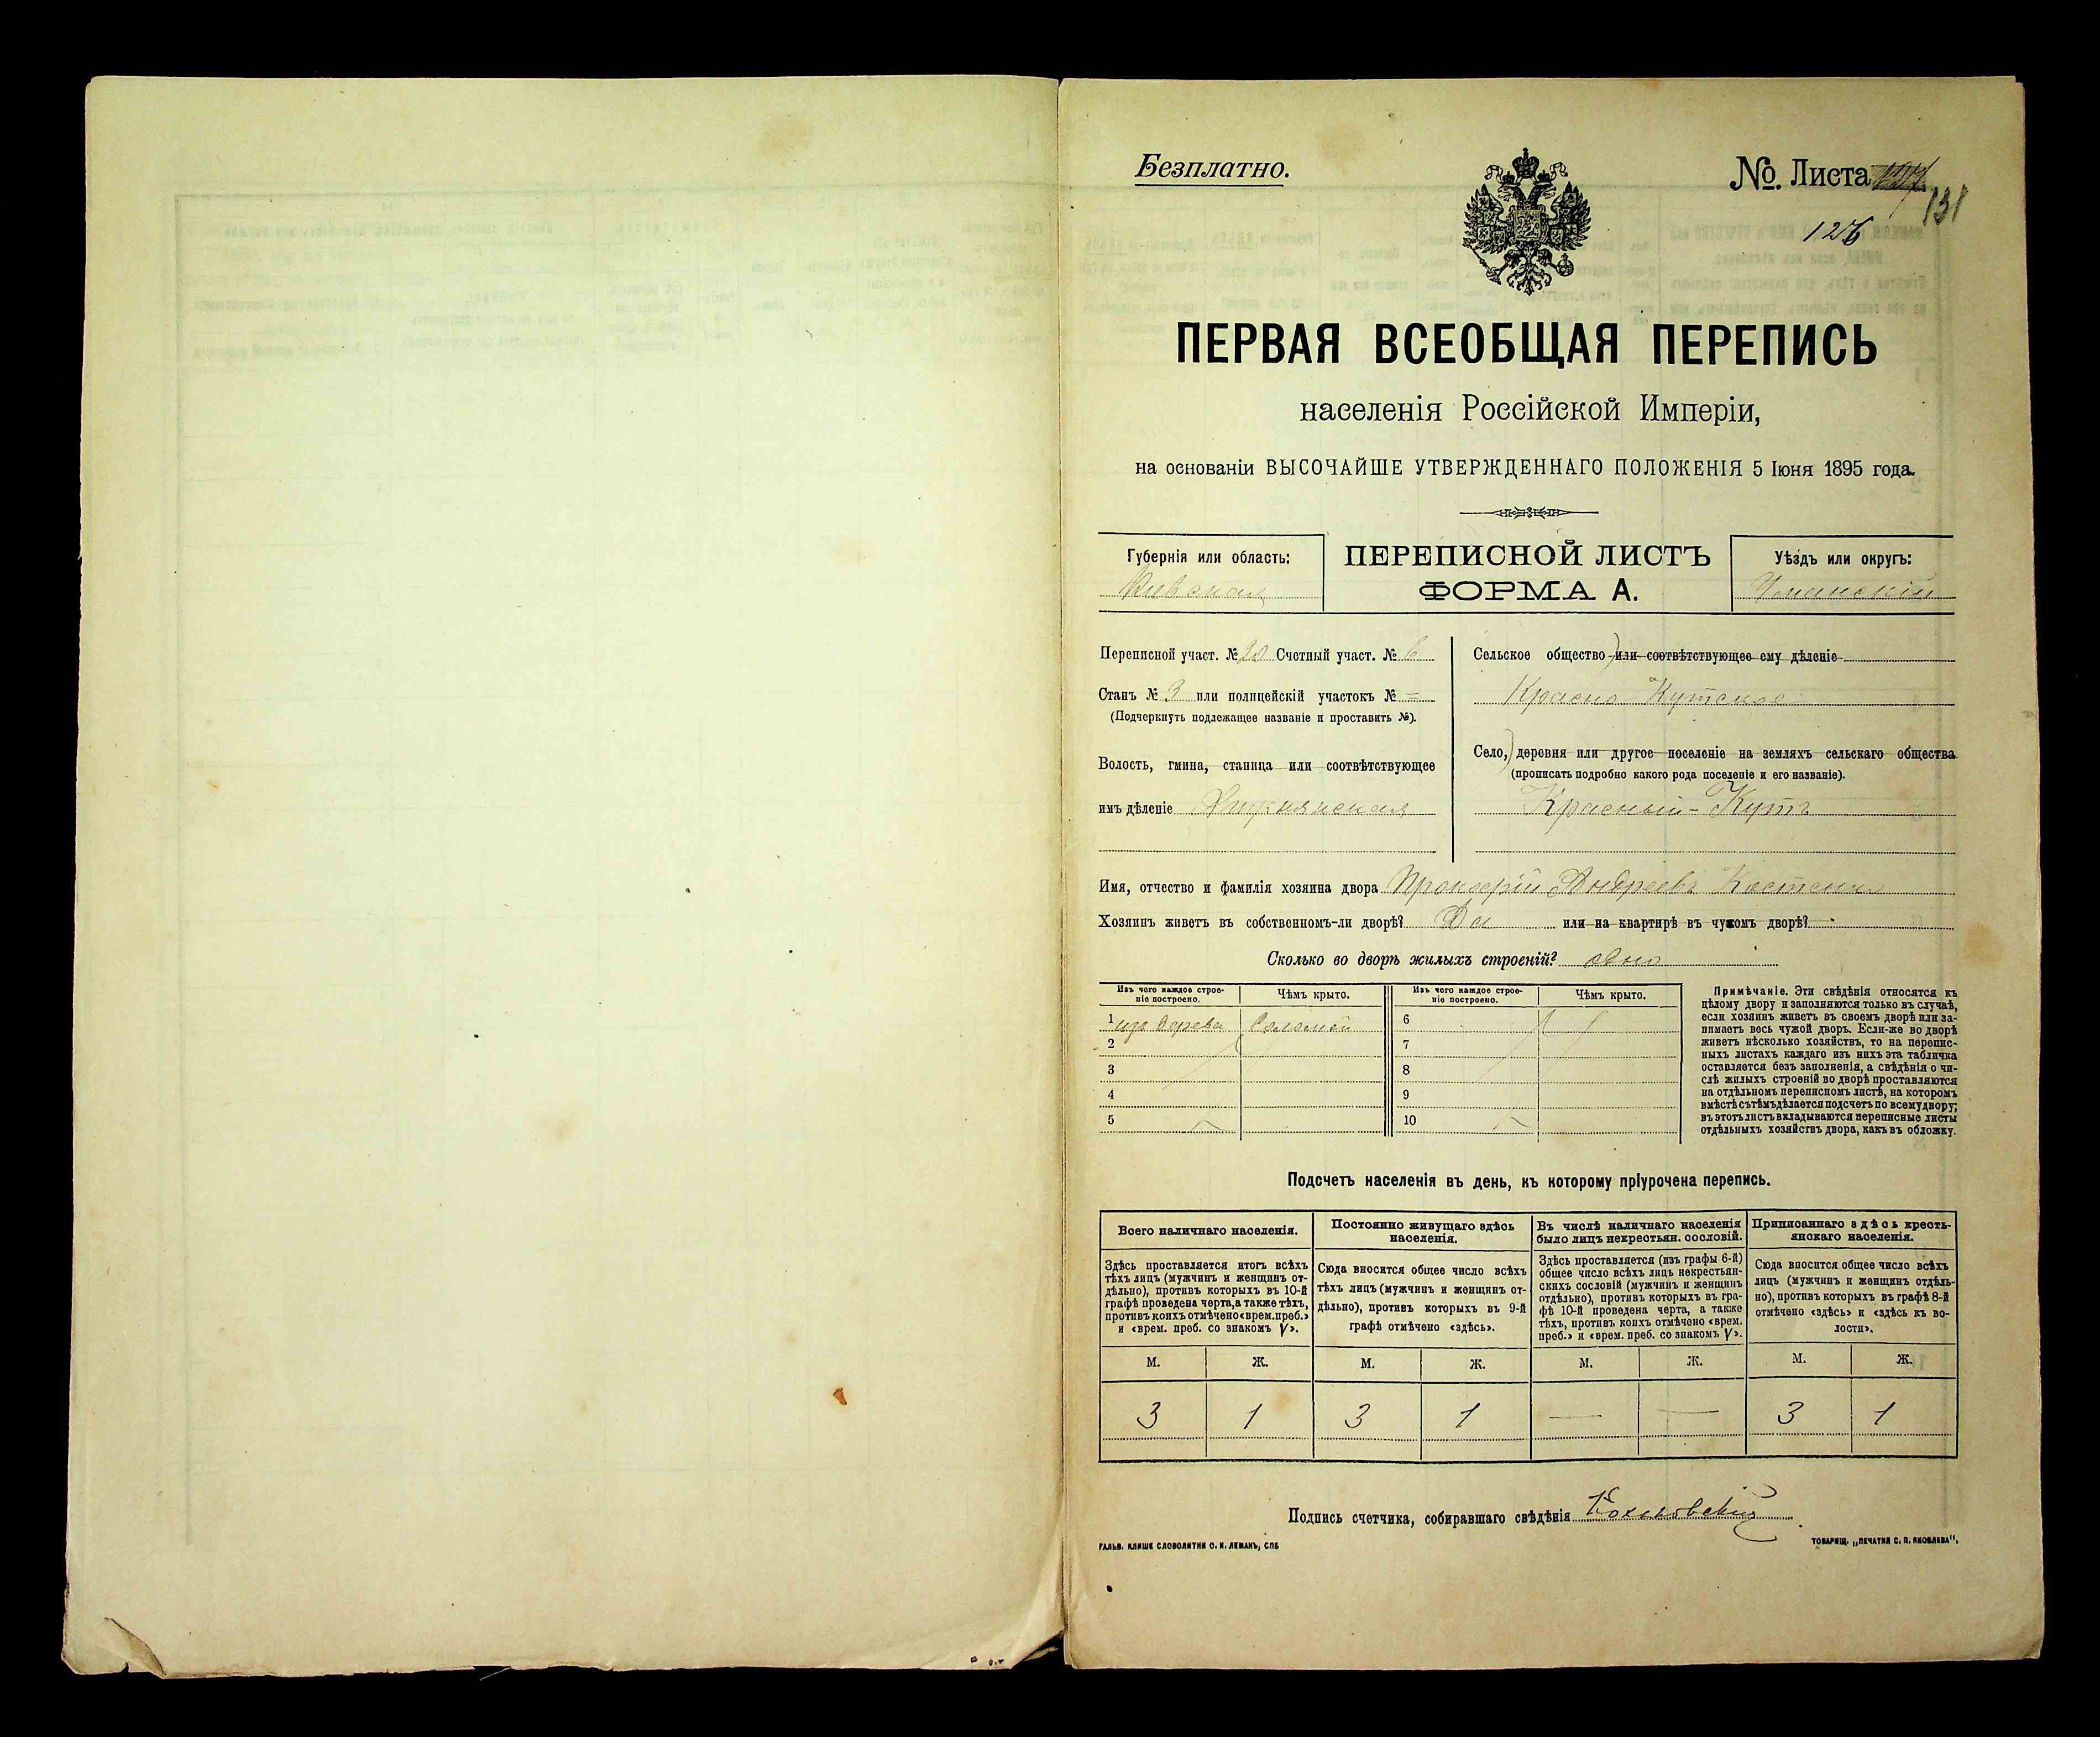 Безплатно.
№. Листа
126
131
ПЕРВАЯ ВСЕОБЩАЯ ПЕРЕПИСЬ
населенія Россійской Имперіи,
на основаніи ВЫСОЧАЙШЕ УТВЕРЖДЕННАГО ПОЛОЖЕНІЯ 5 Іюня 1895 года.
Губернія или область:
Кіевская
ПЕРЕПИСНОЙ ЛИСТЪ
ФОРМА А.
Уѣздъ или округъ:
Уманскій
Переписной участ. № 20 Счетный участ. № 6
Станъ № 3 или полицейскій участокъ № =
(Подчеркнуть подлежащее названіе и проставить №).
Волость, гмина, станица или соотвѣтствующее
имъ дѣленіе
Сельское общество или соотвѣтствующее ему дѣленіе
Красно-Кутское
Село, деревня или другое поселеніе на земляхъ сельскаго общества
(прописать подробно какого рода поселеніе и его названіе).
Красный-Кутъ
Имя, отчество и фамилія хозяина двора Андреевъ
Хозяинъ живетъ въ собственномъ-ли дворѣ? Да или на квартирѣ въ чужомъ дворѣ? -
Сколько во дворѣ жилыхъ строеній? одно
Изъ чего каждое строе-
ніе построено.
Чѣмъ крыто.
Изъ чего каждое строе-
ніе построено.
Чѣмъ крыто.
1 изъ дерева Соломой 6
2 7
3 8
4 9
5 10
Примѣчаніе. Эти свѣдѣнія относятся къ
цѣлому двору и заполняются только въ случаѣ,
если хозяинъ живетъ въ своемъ дворѣ или за-
нимаетъ весь чужой дворъ. Если-же во дворѣ
живетъ нѣсколько хозяйствъ, то на перепис-
ныхъ листахъ каждаго изъ нихъ эта табличка
оставляется безъ заполненія, а свѣдѣнія о чи-
слѣ жилыхъ строеній во дворѣ проставляются
на отдѣльномъ переписномъ листѣ, на которомъ
вмѣстѣ съ тѣмъ дѣлается подсчетъ по всему двору;
въ этотъ листъ вкладываются переписные листы
отдѣльныхъ хозяйствъ двора, какъ въ обложку.
Подсчетъ населенія въ день, къ которому пріурочена перепись.
Всего наличнаго населенія.
Здѣсь проставляется итогъ всѣхъ
тѣхъ лицъ (мужчинъ и женщинъ от-
дѣльно), противъ которыхъ въ 10-й
графѣ проведена черта, а также тѣхъ,
противъ коихъ отмѣчено «врем. преб.»
и «врем. преб. со знакомъ V».
Постоянно живущаго здѣсь
населенія.
Сюда вносится общее число всѣхъ
тѣхъ лицъ (мужчинъ и женщинъ от-
дѣльно), противъ которыхъ въ 9-й
графѣ отмѣчено «здѣсь».
Въ числѣ наличнаго населенія
было лицъ некрестьян. сословій.
Здѣсь проставляется (изъ графы 6-й)
общее число всѣхъ лицъ некрестьян-
скихъ сословій (мужчинъ и женщинъ
отдѣльно), противъ которыхъ въ гра-
фѣ 10-й проведена черта, а также
тѣхъ, противъ коихъ отмѣчено «врем.
преб.» и «врем. преб. со знакомъ V».
Приписаннаго здѣсь кресть-
янскаго населенія.
Сюда вносится общее число всѣхъ
лицъ (мужчинъ и женщинъ отдѣль-
но), противъ которыхъ въ графѣ 8-й
отмѣчено «здѣсь» и «здѣсь къ во-
лости».
М. Ж. М. Ж. М. Ж. М. Ж.
3 1 3 1 — — 3 1
Подпись счетчика, собиравшаго свѣдѣнія
ГАЛЬВ. КЛИШЕ СЛОВОЛИТНИ О. И. ЛЕМАНЪ, СПБ
ТОВАРИЩ. „ПЕЧАТНЯ С. П. ЯКОВЛЕВА“.